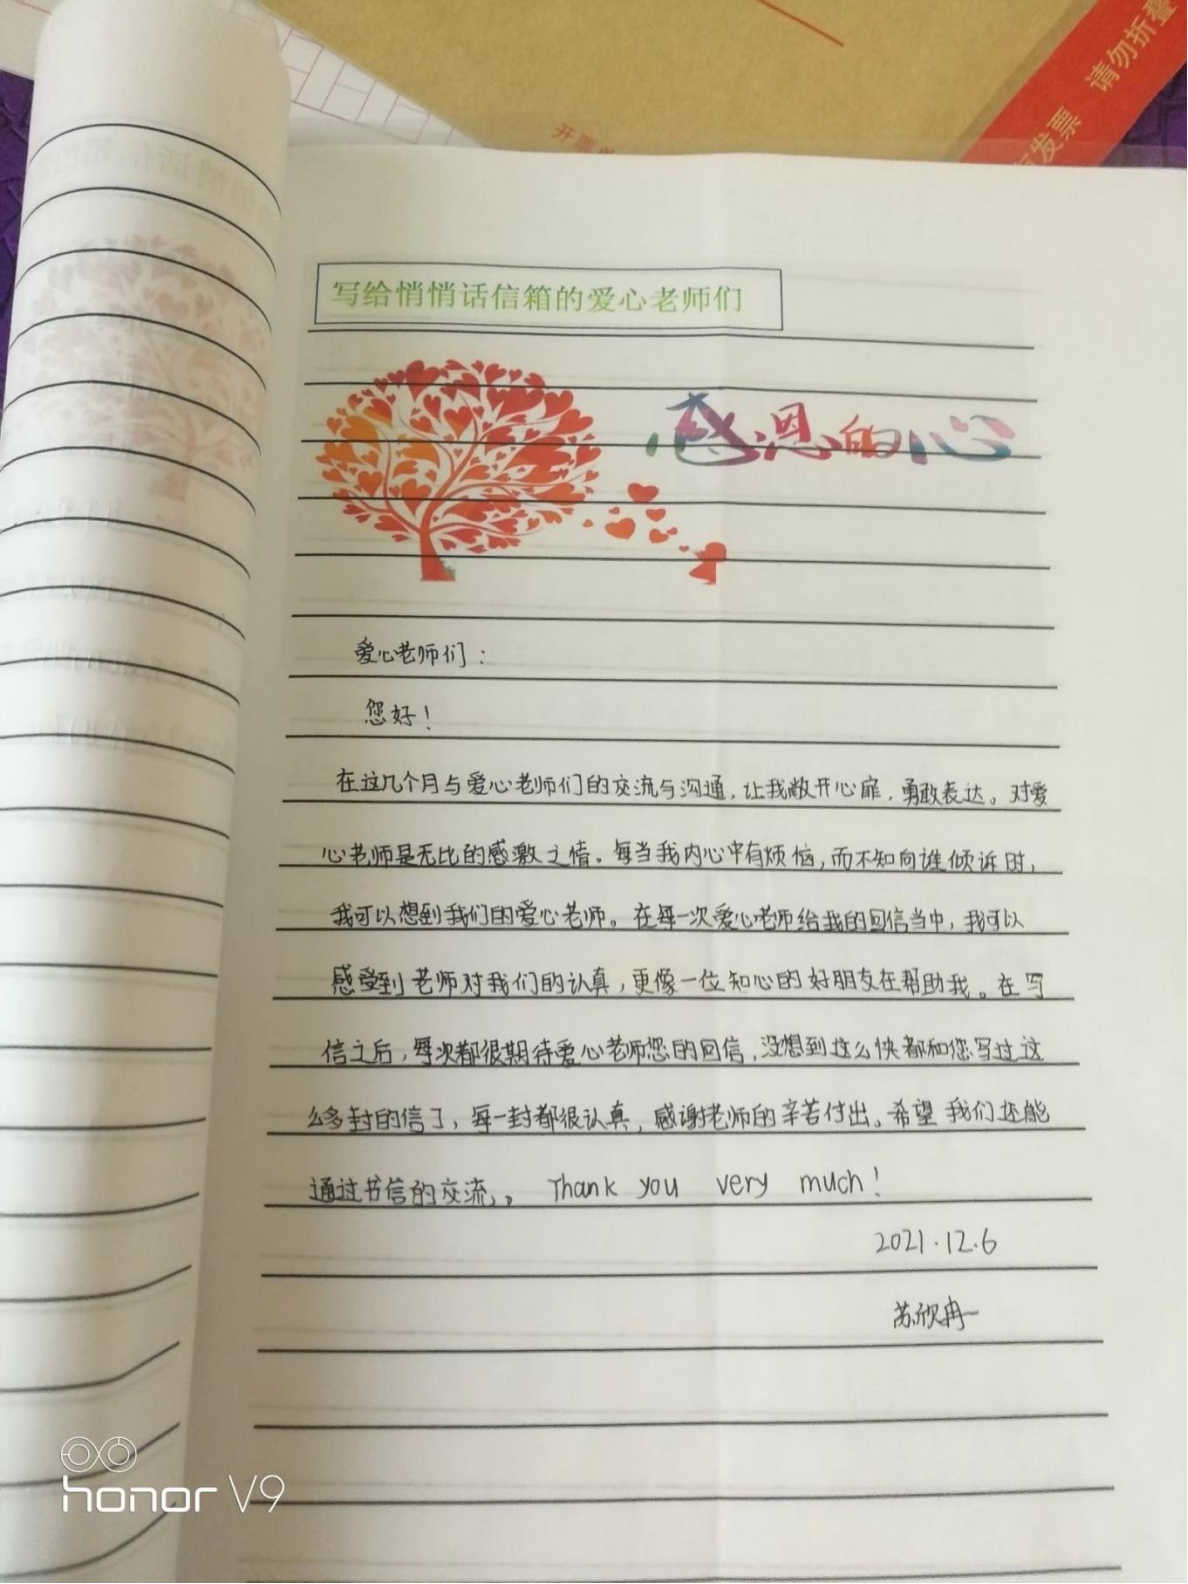 请勿折叠
发票
开票
写给悄悄话信箱的爱心老师们
感恩的心
爱心老师们：
您好！
在这几个月与爱心老师们的交流与沟通，让我敞开心扉，勇敢表达。对爱
心老师是无比的感激之情。每当我内心中有烦恼，而不知向谁倾诉时，
我可以想到我们的爱心老师。在每一次爱心老师给我的回信当中，我可以
感受到老师对我们的认真，更像一位知心的好朋友在帮助我。在写
信之后，每次都很期待爱心老师您的回信，没想到这么快都和您写过这
么多封的信了，每一封都很认真，感谢老师的辛苦付出。希望我们还能
通过书信的交流，。 Thank you very much！
2021.12.6
苏欣冉
honor V9